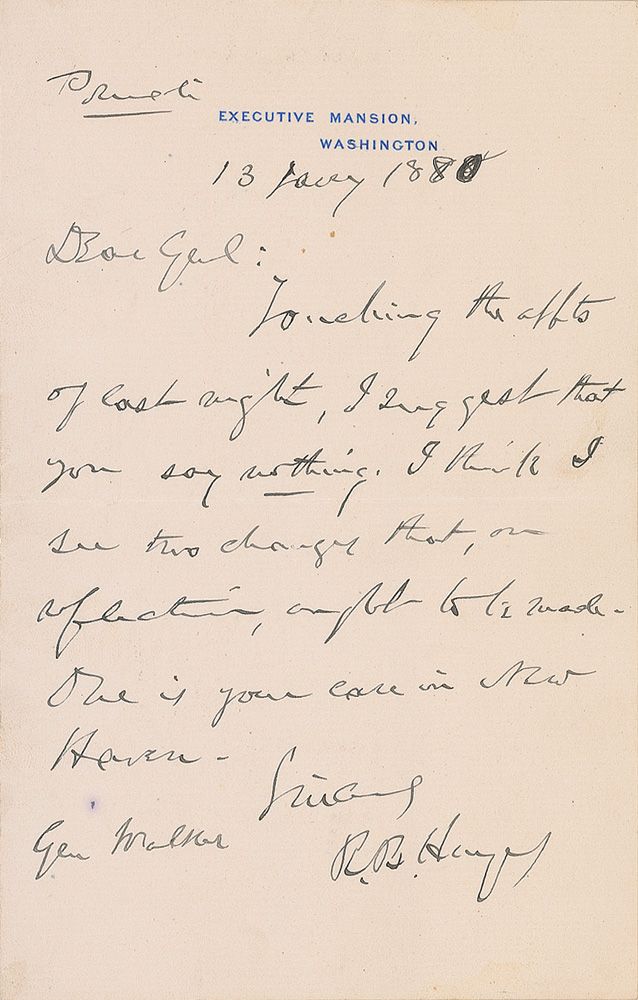 Private
EXECUTIVE MANSION,
WASHINGTON
13 Jany 1880
Dear Genl:
Touching the appts
of last night, I suggest that
you say nothing. I think I
see two changes that, on
reflection, ought to be made -
One is your case in New
Haven -
Sincerely
R.B. Hayes
Gen Walker